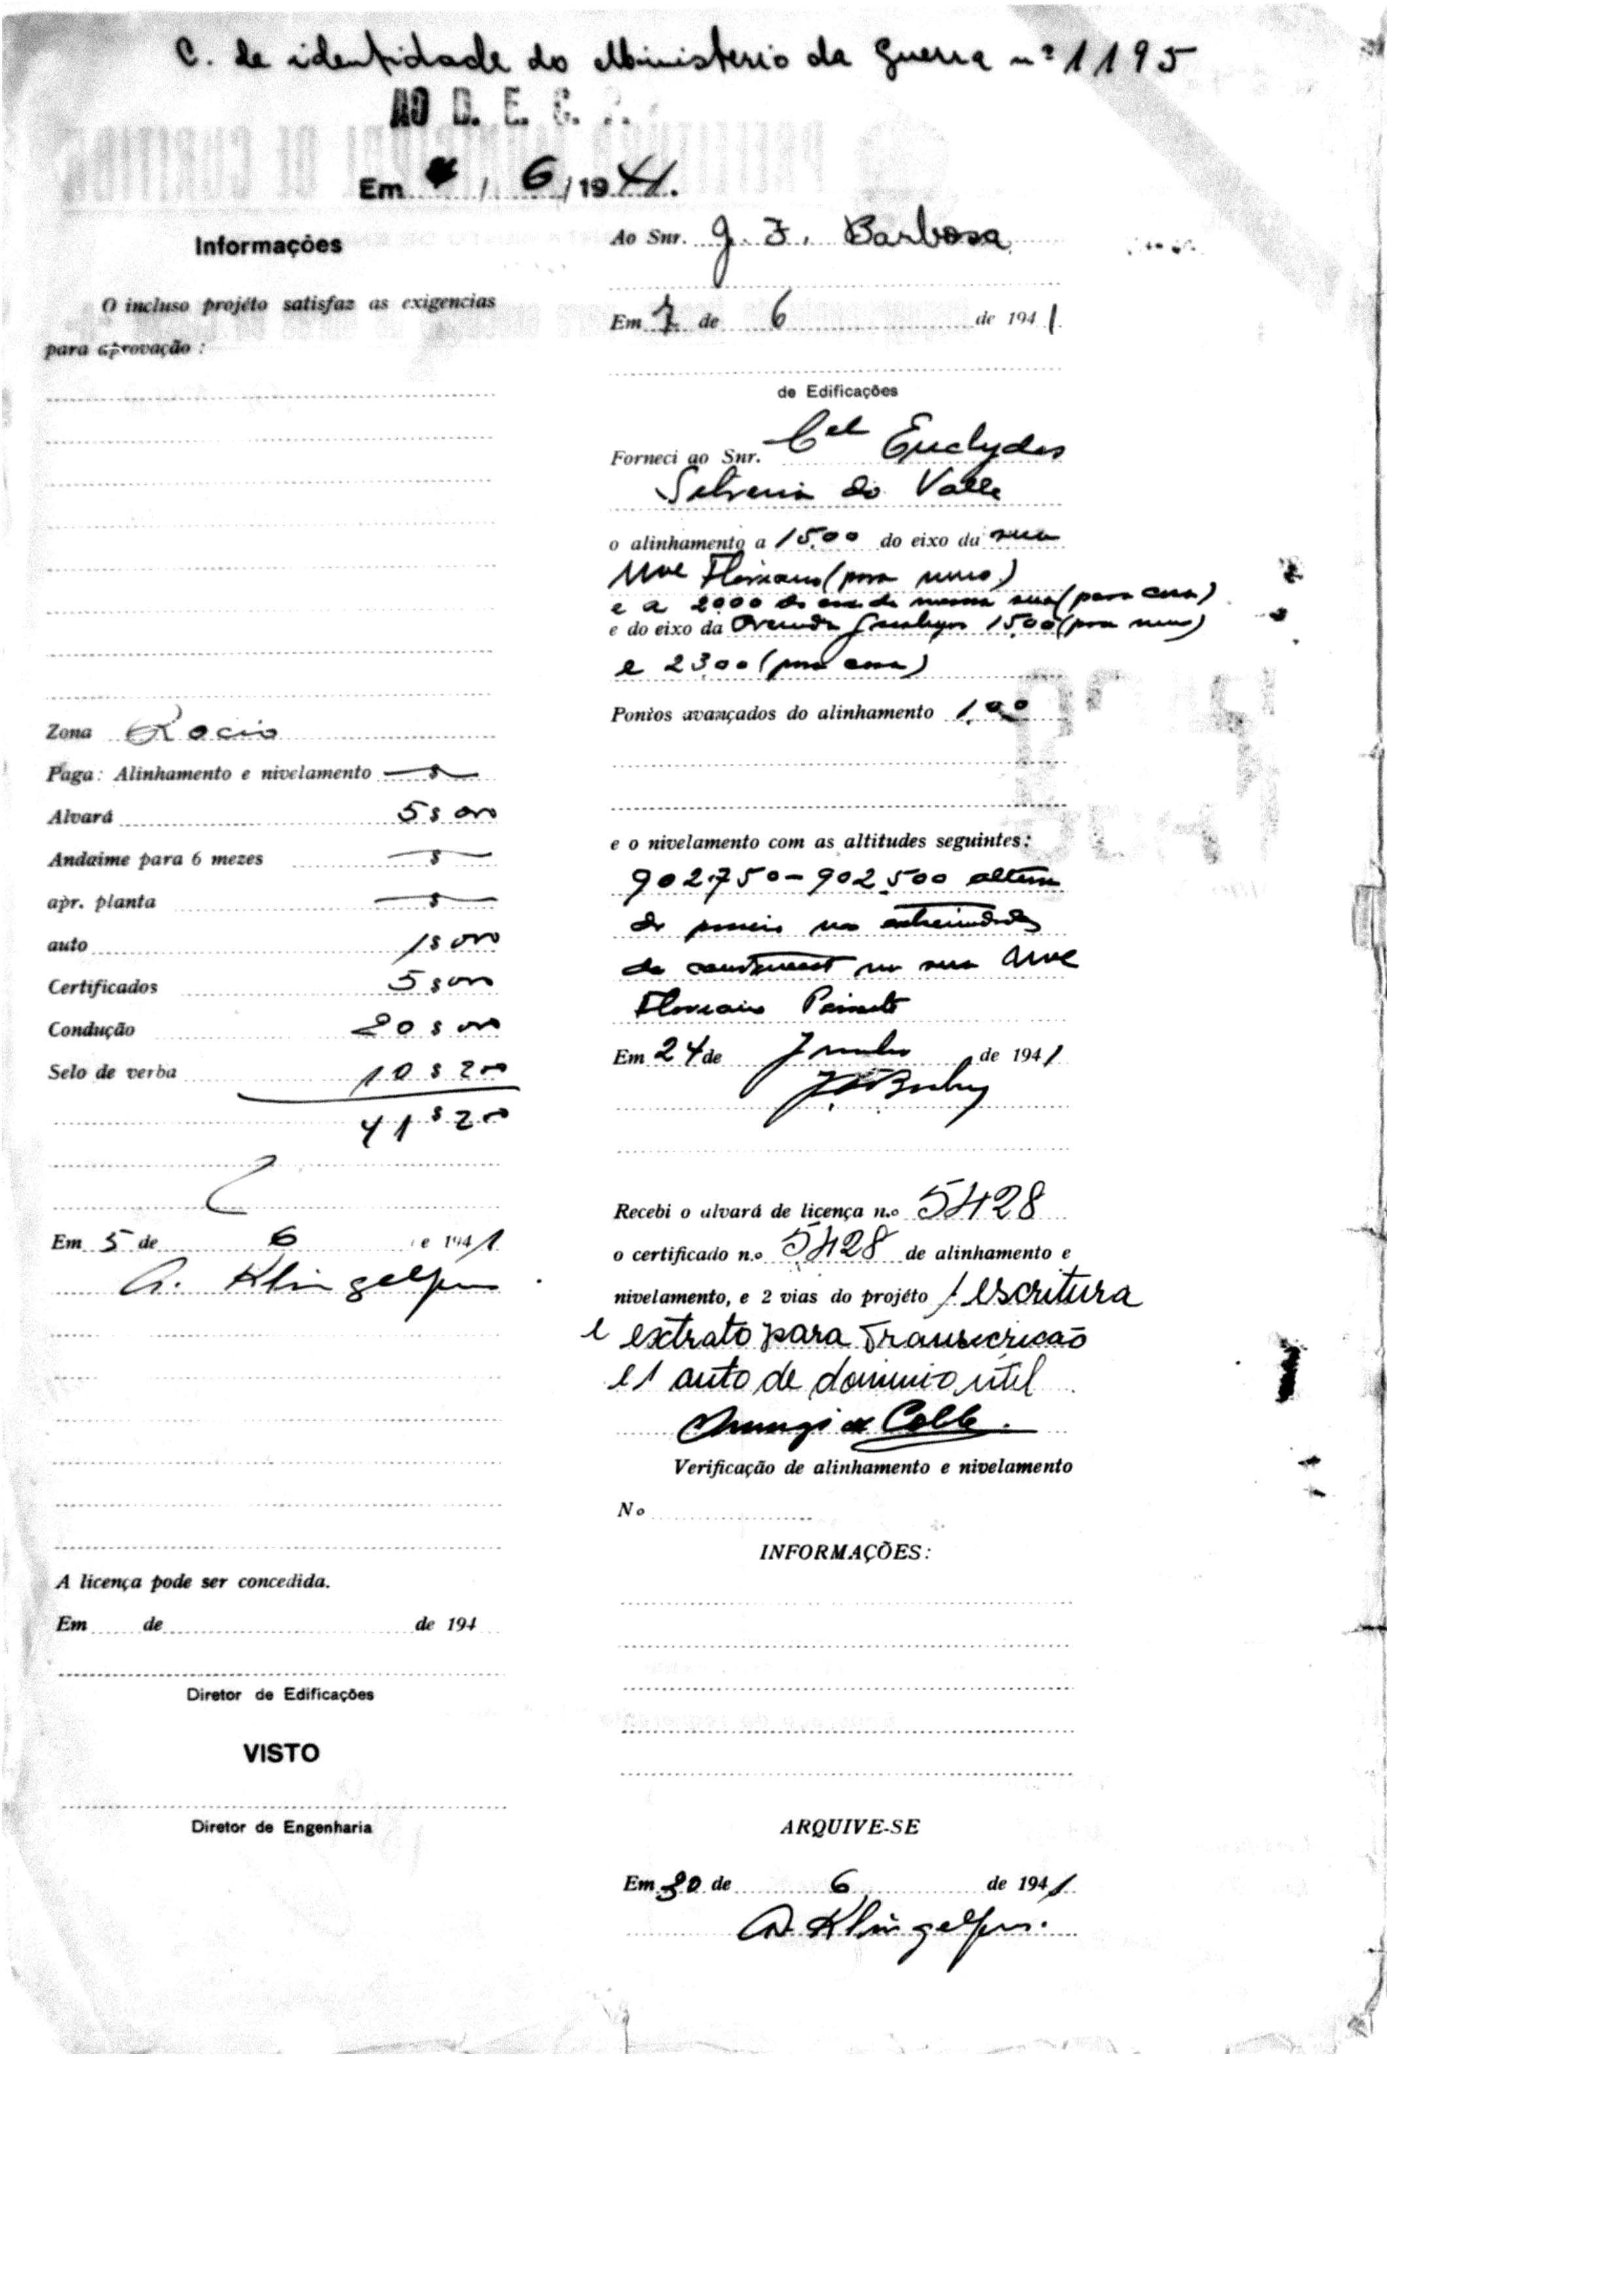 C. de identidade do Ministerio da Guerra nº 1195
AO D. E. C.
Em / 6 / 1941.
Informações
O incluso projéto satisfaz as exigencias
para aprovação :
Zona Rocio
Paga: Alinhamento e nivelamento $
Alvará 5$000
Andaime para 6 mezes $
apr. planta $
auto 1$000
Certificados 5$000
Condução 20$000
Selo de verba 10$200
41$200
Em 5 de 6 de 1941
A licença pode ser concedida.
Em de de 194
Diretor de Edificações
VISTO
Diretor de Engenharia
Ao Snr. J. F. Barbosa
Em 7 de 6 de 1941
de Edificações
Forneci ao Snr. Cel Euclydes
Silveira do Valle
o alinhamento a 15.00 do eixo da rua
Mal Floriano (para muro)
e a 20.00 do eixo da mesma rua (para casa)
e do eixo da Avenida 15.00 (para muro)
e 23.00 (para casa)
Pontos avançados do alinhamento 1.00
e o nivelamento com as altitudes seguintes:
902.750 - 902.500 altura
do passeio nas extremidades
da na rua Mal
Floriano Peixoto
Em 24 de Junho de 1941
Recebi o alvará de licença n.o 5428
o certificado n.o 5428 de alinhamento e
nivelamento, e 2 vias do projéto 1 escritura
e extrato para Transcrição
e 1 auto de dominio util
Verificação de alinhamento e nivelamento
No
INFORMAÇÕES:
ARQUIVE-SE
Em 30 de 6 de 1941